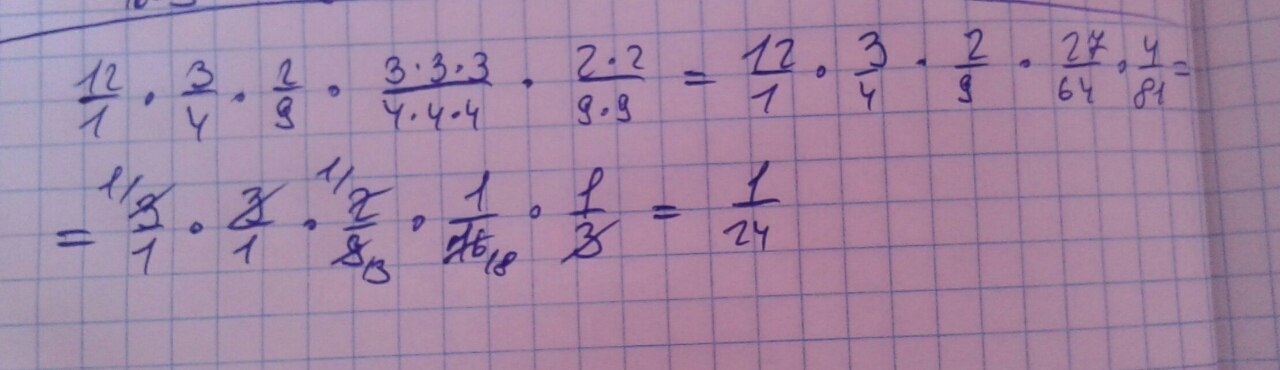 12/1 · 3/4 · 2/9 · 3·3·3/4·4·4 · 2·2/9·9 = 12/1 · 3/4 · 2/9 · 27/64 · 4/81 =
= 1/ 3/1 · 3/1 · 1/ 2/9 /3 · 1/16 /8 · 1/3 = 1/24